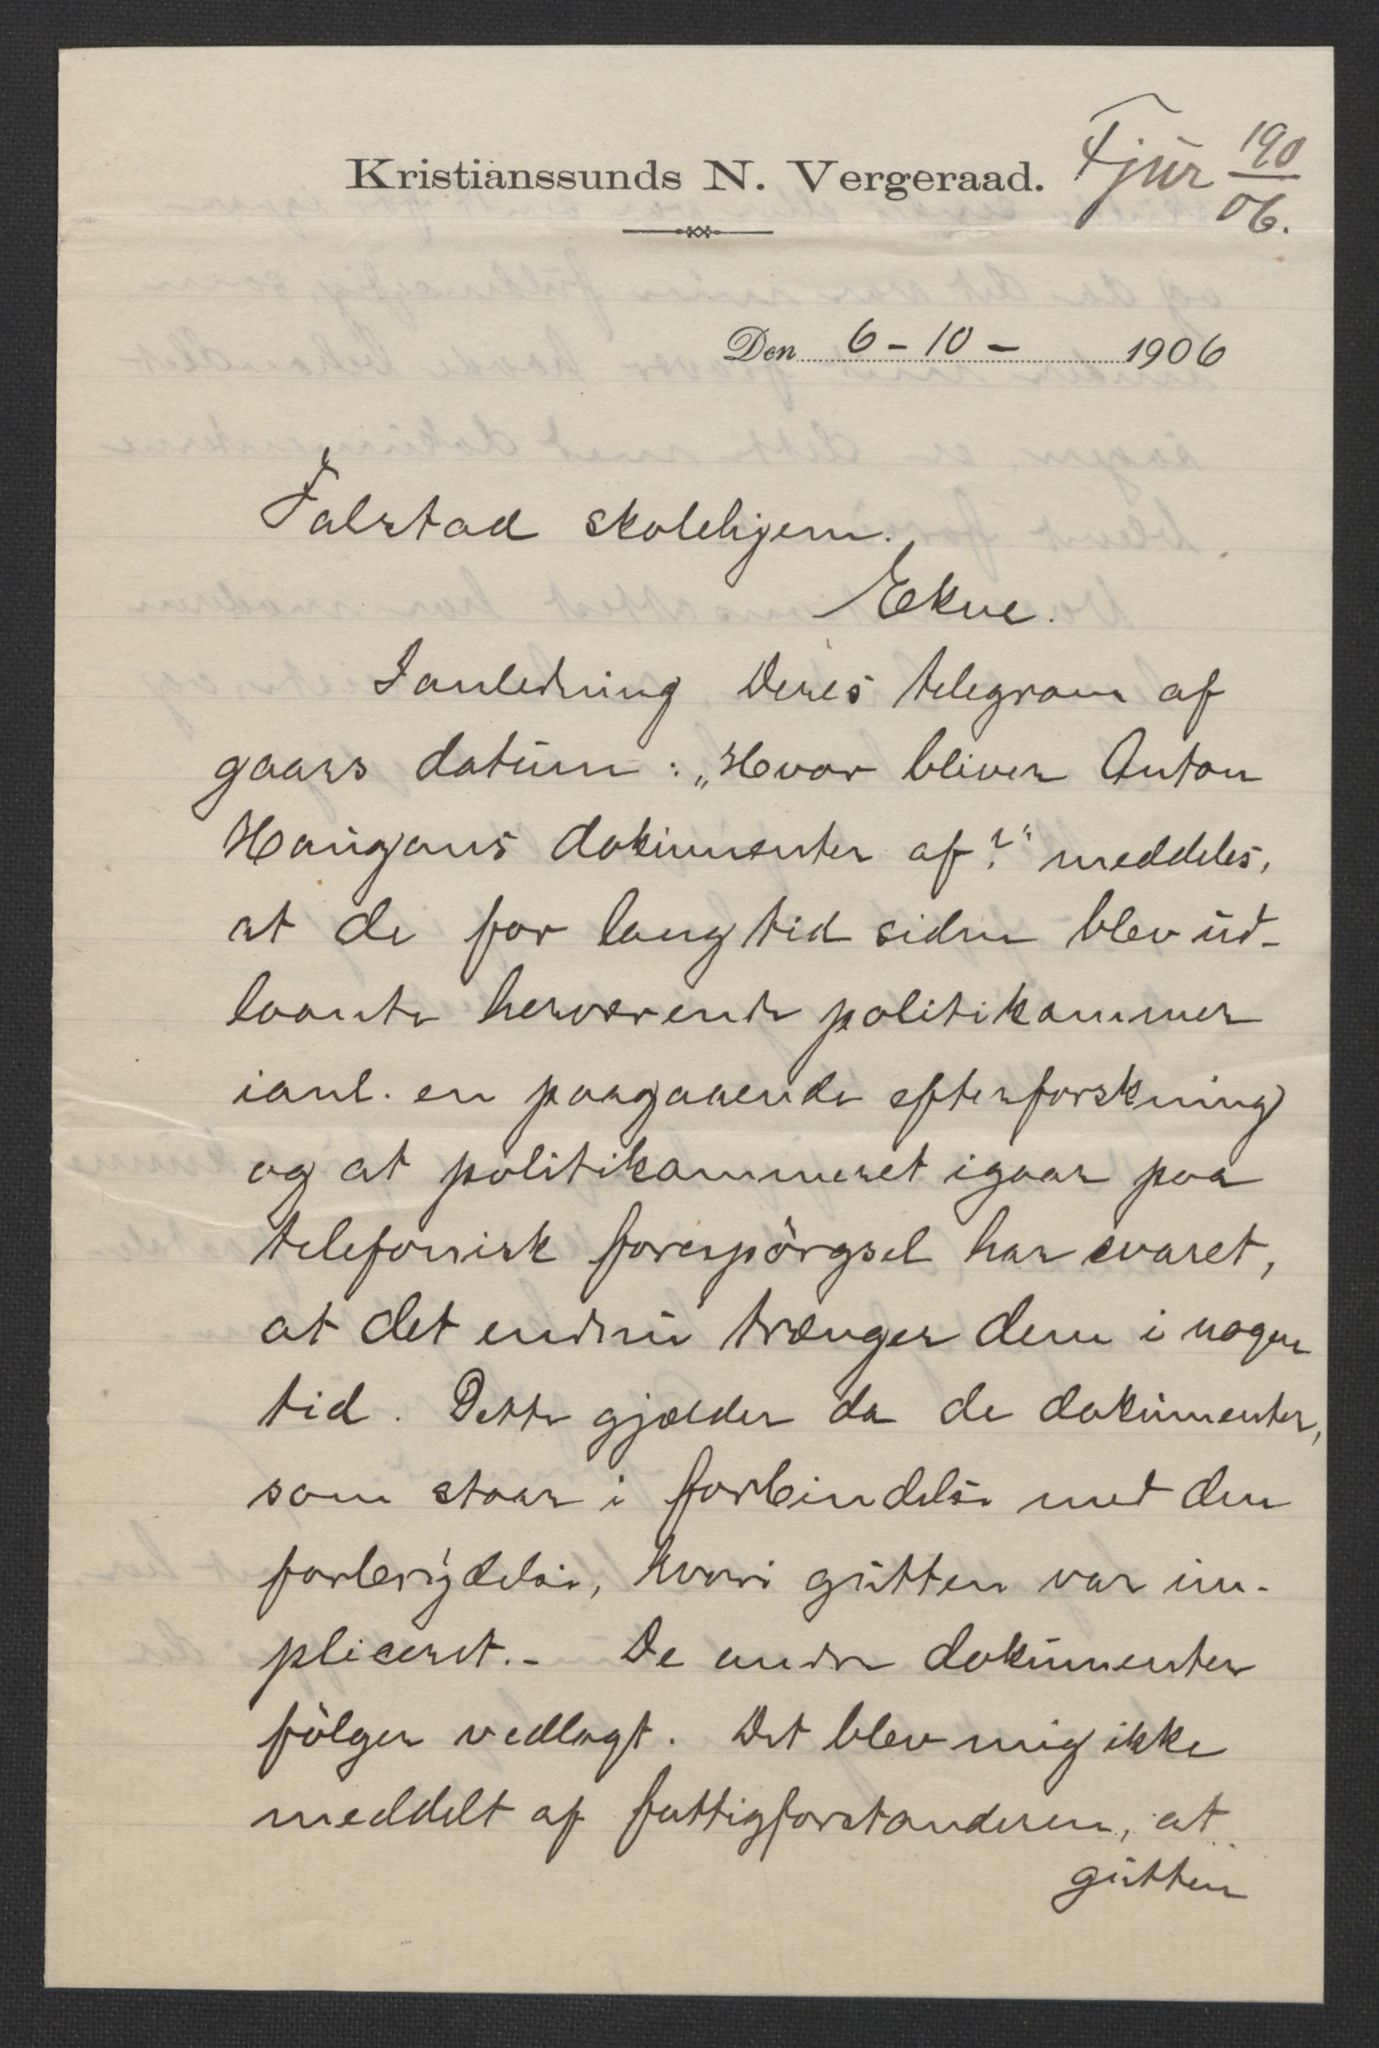 Kristianssunds N. Vergeraad.
Fjur 190/06.
Den 6-10- 1906
Falstad skolehjem.
Ekne.
Ianledning Deres telegram af
gaars datum: „Hvor bliver Anton
Haugans dokumenter af?" meddeles,
at de for lang tid siden blev ud-
laante herværende politikammer
ianl. en paagaaende efterforskning
og at politikammeret igaar paa
telefonisk forespörgsel har svaret,
at det endnu trænger dem i nogen
tid. Dette gjælder da de dokumenter,
som staar i forbindelse med den
forbrydelse, hvori gutten var im-
pliceret.- De andre dokumenter
fölger vedlagt. Det blev mig ikke
meddelt af fattigforstanderen, at
gutten